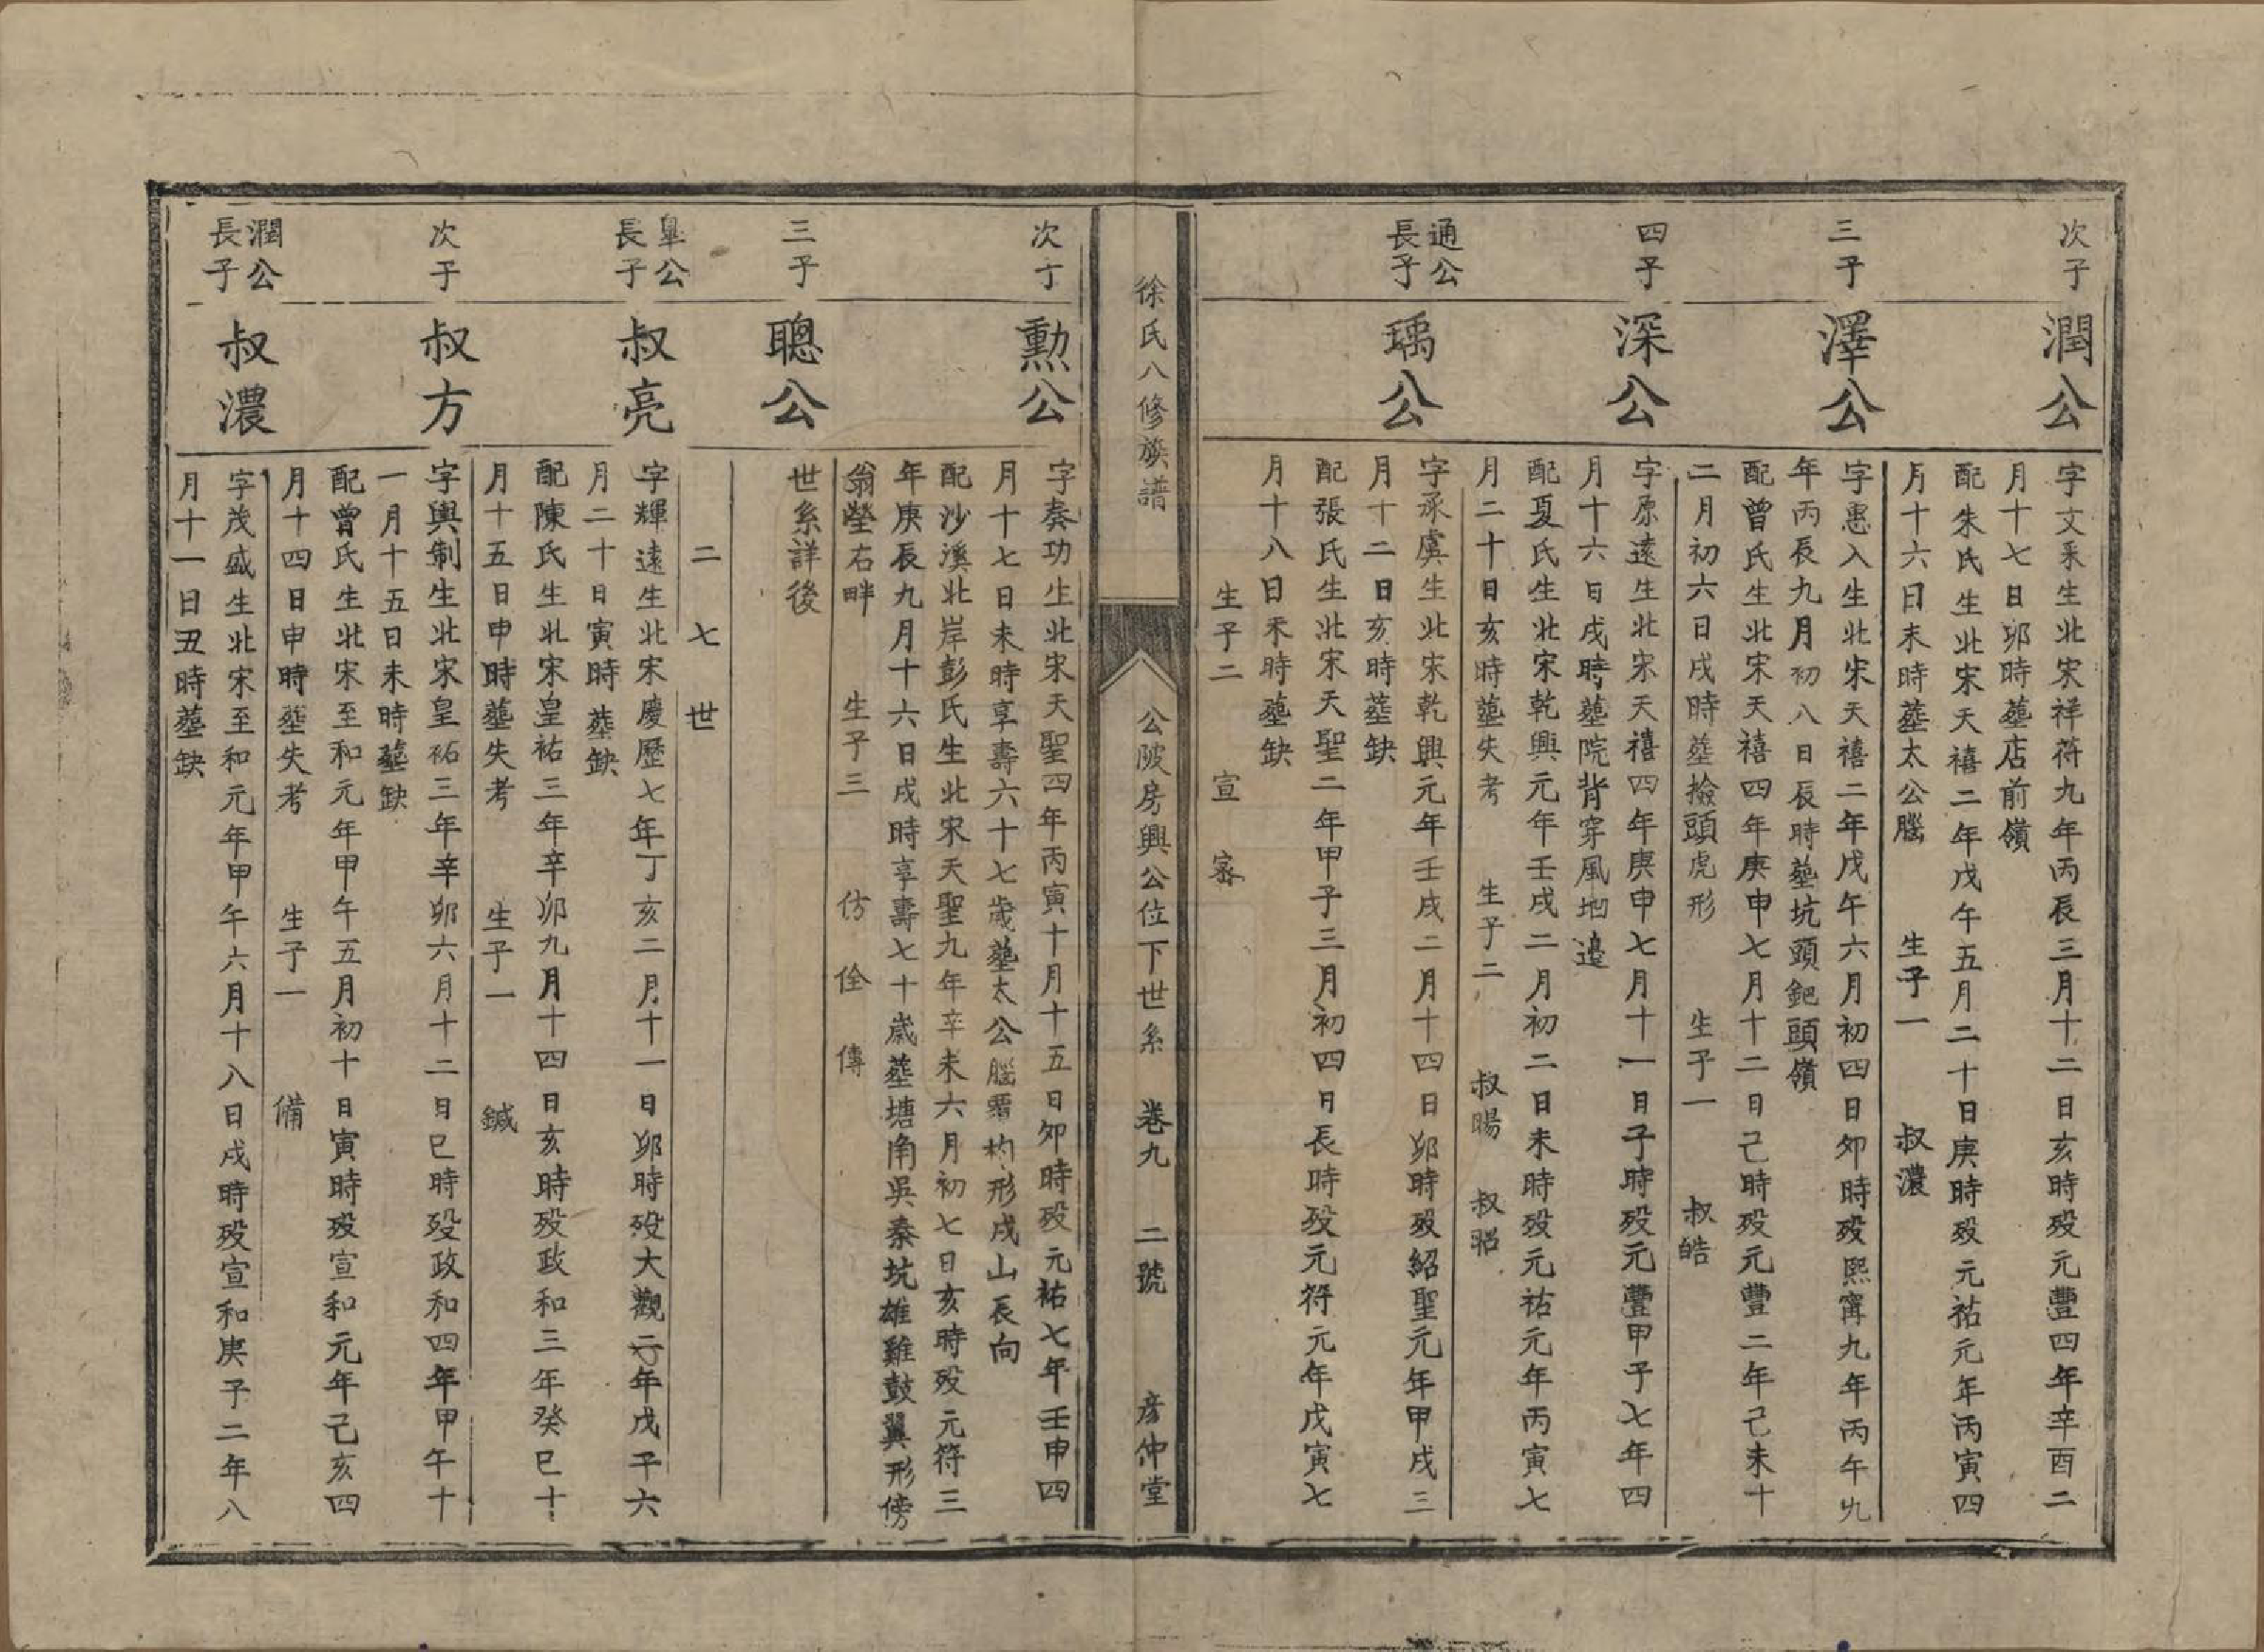 次子
潤公
字文釆生北宋祥符九年丙辰三月十二日亥時殁元豐四年辛酉二
月十七日卯時塟店前嶺
配朱氏生北宋天禧二年戊午五月二十日庚時殁元祐元年丙寅四
月十六日未時塟太公腦 生子一 叔濃
三子
澤公
字惠入生北宋天禧二年戊午六月初四日卯時殁熙寗九年丙午九
年丙辰九月初八日辰時塟坑頭鈀頭嶺
配曾氏生北宋天禧四年庚申七月十二日己時殁元豐二年己未十
二月初六日戌時塟撿頭虎形 生子一 叔皓
四子
深公
字原遠生北宋天禧四年庚申七月十一日子時殁元豐甲子七年四
月十六日戌時塟院背穿風地邉
配夏氏生北宋乾興元年壬戌二月初二日未時殁元祐元年丙寅七
月二十日亥時塟失考 生子二 叔暘 叔昭
通公
長子
瑀公
字承虞生北宋乾興元年壬戌二月十四日卯時殁紹聖元年甲戌三
月十二日亥時塟缺
配張氏生北宋天聖二年甲子三月初四日長時殁元符元年戊寅七
月十八日未時塟缺
生子二 宣 宻
徐氏八修族譜
公陂房興公位下世系 卷九 二號 彦仲堂
次子
勳公
字奏功生北宋天聖四年丙寅十月十五日卯時殁元祐七年壬申四
月十七日未時享壽六十七歲塟太公腦覆杓形戌山辰向
配沙溪北岸彭氏生北宋天聖九年辛未六月初七日亥時殁元符三
年庚辰九月十六日戌時享壽七十歲塟塘南吳秦坑雄雞鼓翼形傍
翁塋右畔 生子三 仿 佺 傳
三子
聰公
世系詳後
二七世
皐公
長子
叔亮
字輝遠生北宋慶歷七年丁亥二月十一日卯時殁大觀二年戊子六
月二十日寅時塟缺
配陳氏生北宋皇祐三年辛卯九月十四日亥時殁政和三年癸巳十
月十五日申時塟失考 生子一 鍼
次子
叔方
字興制生北宋皇祐三年辛卯六月十二日巳時殁政和四年甲午十
一月十五日未時塟缺
配曾氏生北宋至和元年甲午五月初十日寅時殁宣和元年己亥四
月十四日申時塟失考 生子一 備
潤公
長子
叔濃
字茂盛生北宋至和元年甲午六月十八日戌時殁宣和庚子二年八
月十一日丑時塟缺